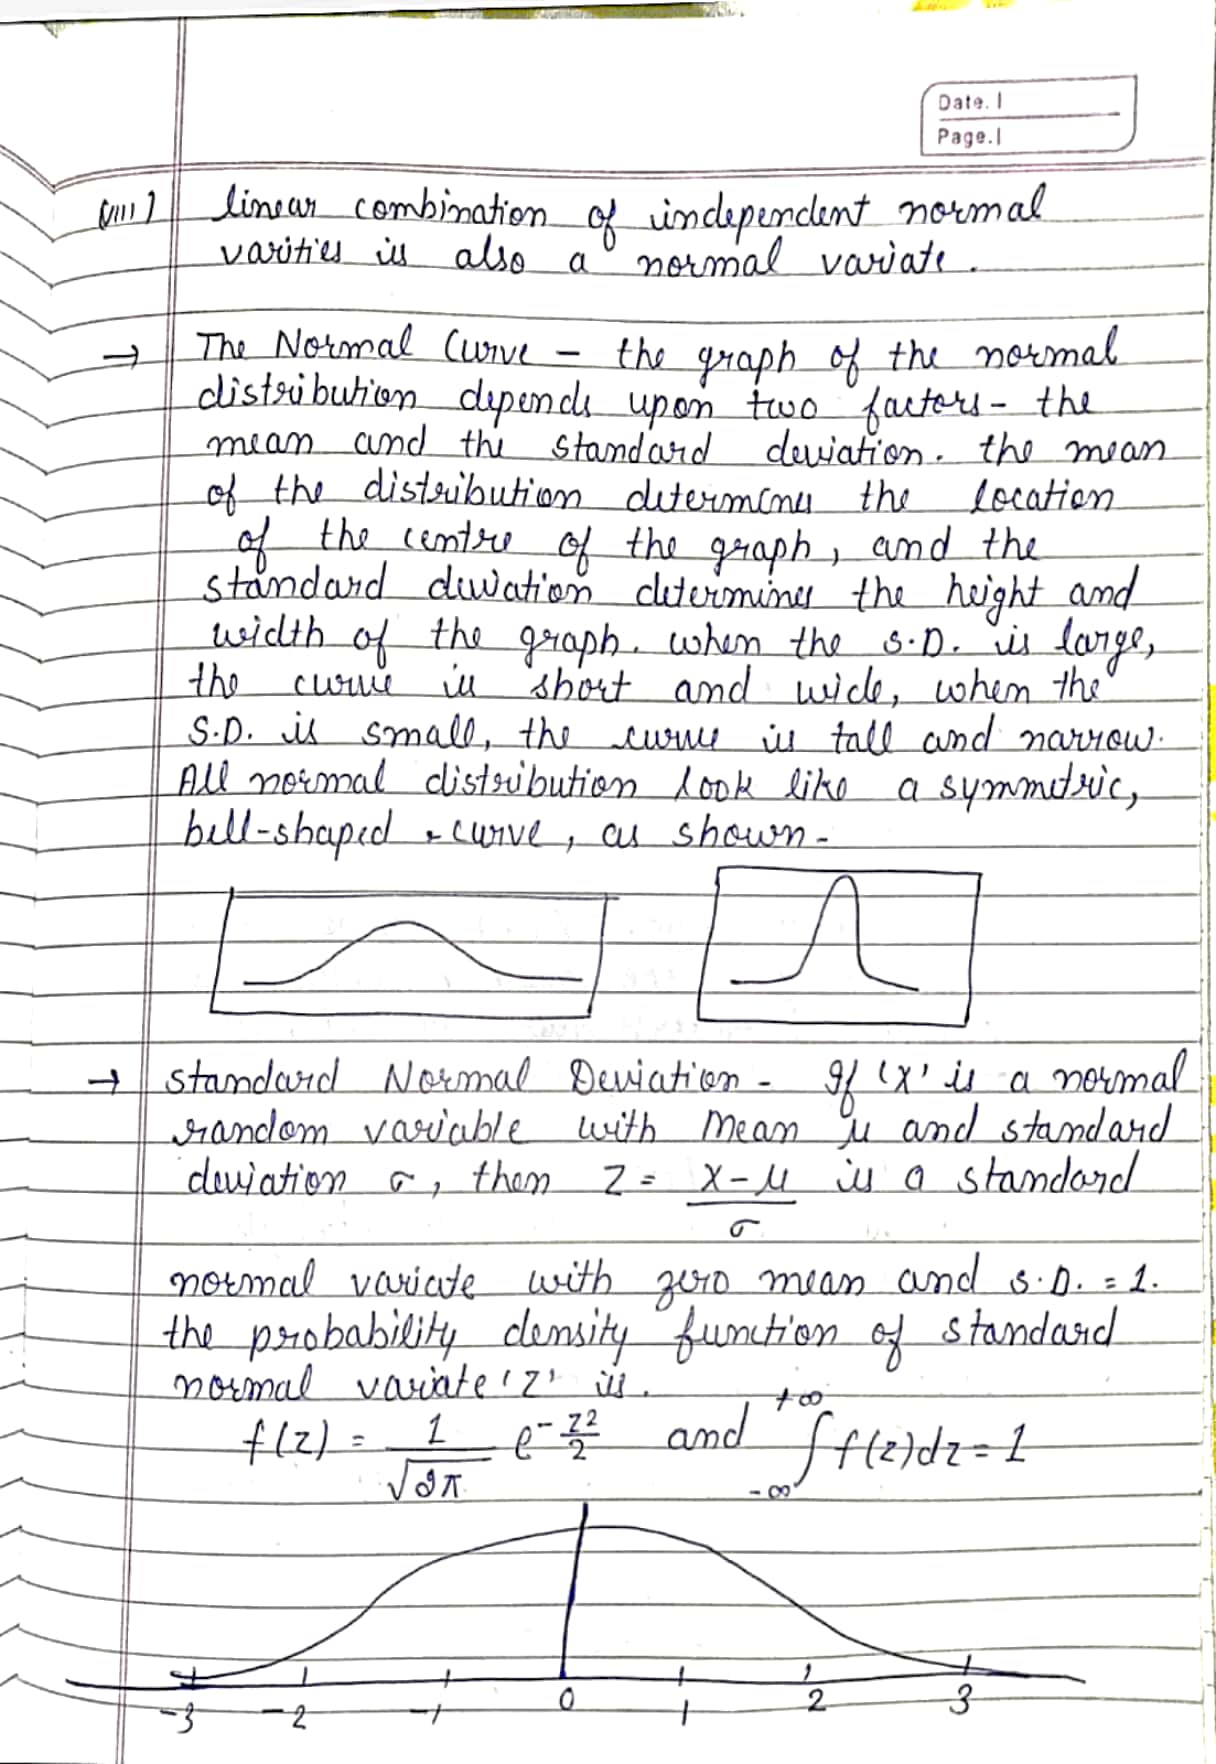 Date.
Page.
(viii) linear combination of independent normal
varities is also a normal variate.
→ The Normal Curve - the graph of the normal
distribution depends upon two factors - the
mean and the standard deviation. the mean
of the distribution determines the location
of the centre of the graph, and the
standard deviation determines the height and
width of the graph. when the S.D. is large,
the curve is short and wide, when the
S.D. is small, the curve is tall and narrow.
All normal distribution look like a symmetric,
bell-shaped curve, as shown -
→ standard Normal Deviation - If 'X' is a normal
random variable with Mean μ and standard
deviation σ, then Z = X-μ is a standard
σ
normal variate with zero mean and S.D. = 1.
the probability density function of standard
normal variate 'Z' is.
f(z) = 1/√2π e^-z²/2 and ∫_-∞^+∞ f(z)dz = 1
-3 -2 -1 0 1 2 3